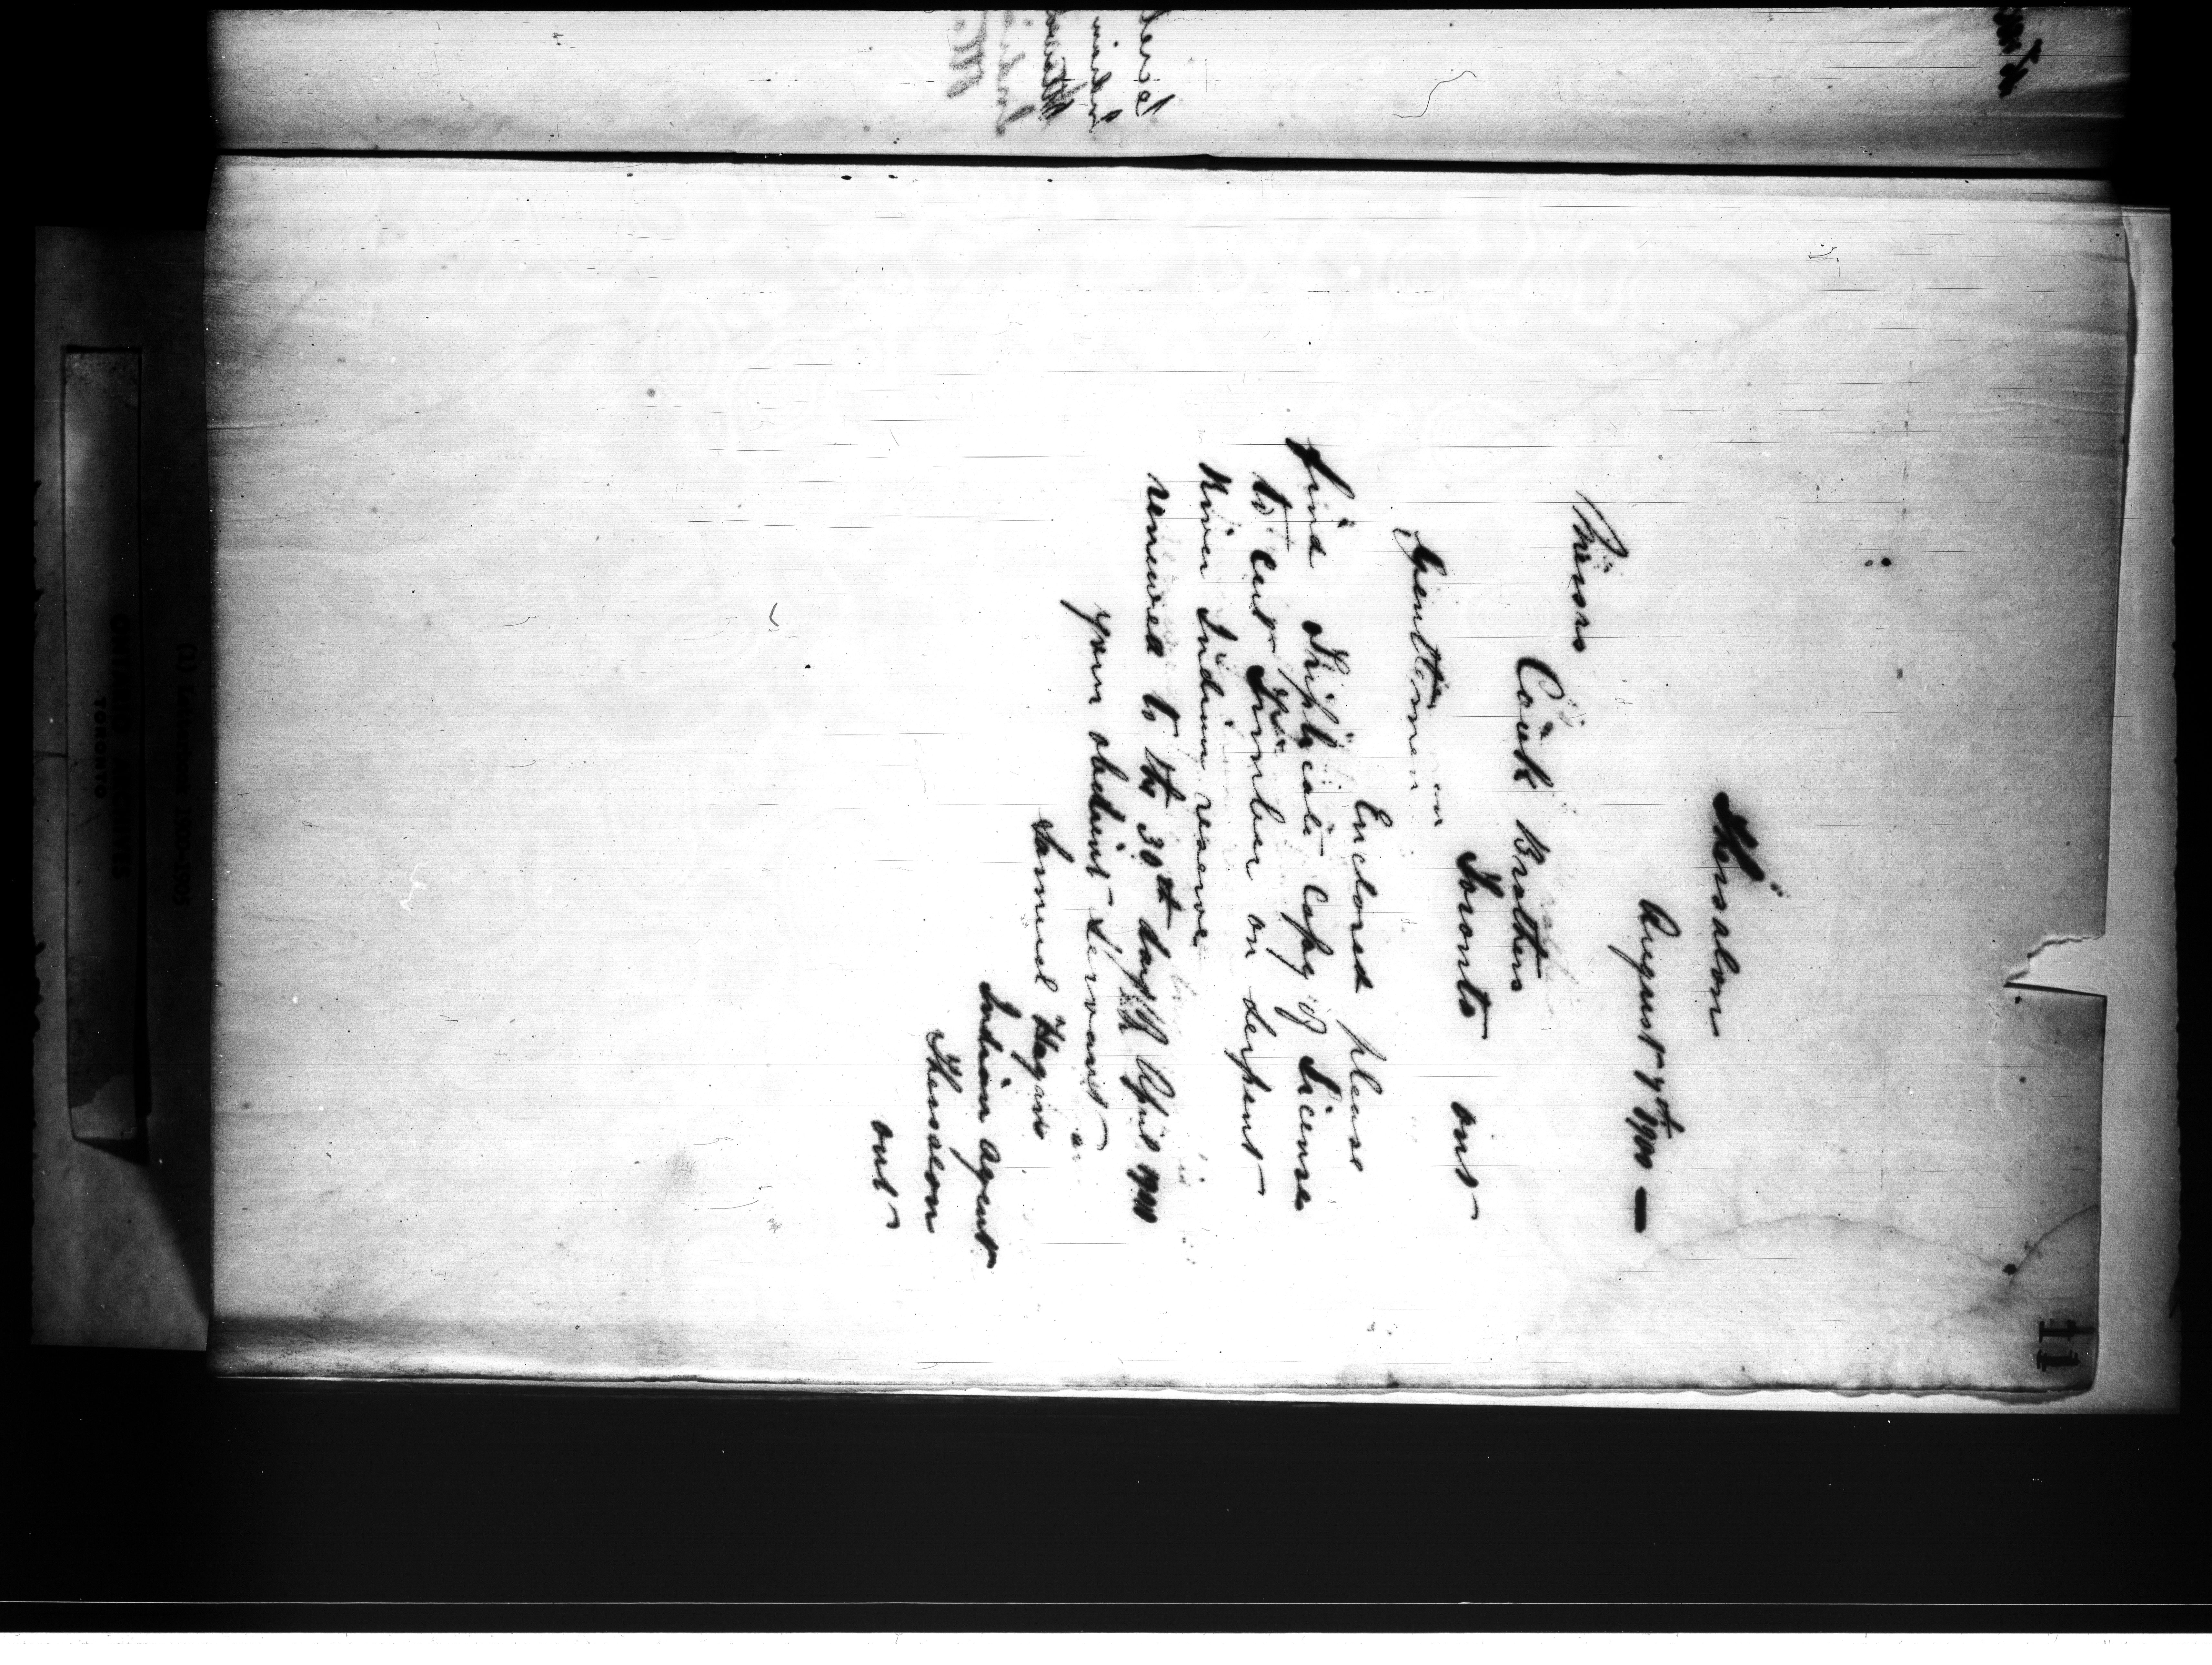 11
Thessalon
August 7th 1900 —
Messrs
Cook Brothers
Toronto Ont
Gentlemen
Enclosed please
find Triplicate Copy of License
to Cut Timber on Serpent
River Indian reserve
renewed to the 30th day of April 1901
your obedient Servant
Samuel Hagan
Indian Agent
Thessalon
Ont
(1) Letterbook 1900-1905
ONTARIO ARCHIVES
TORONTO